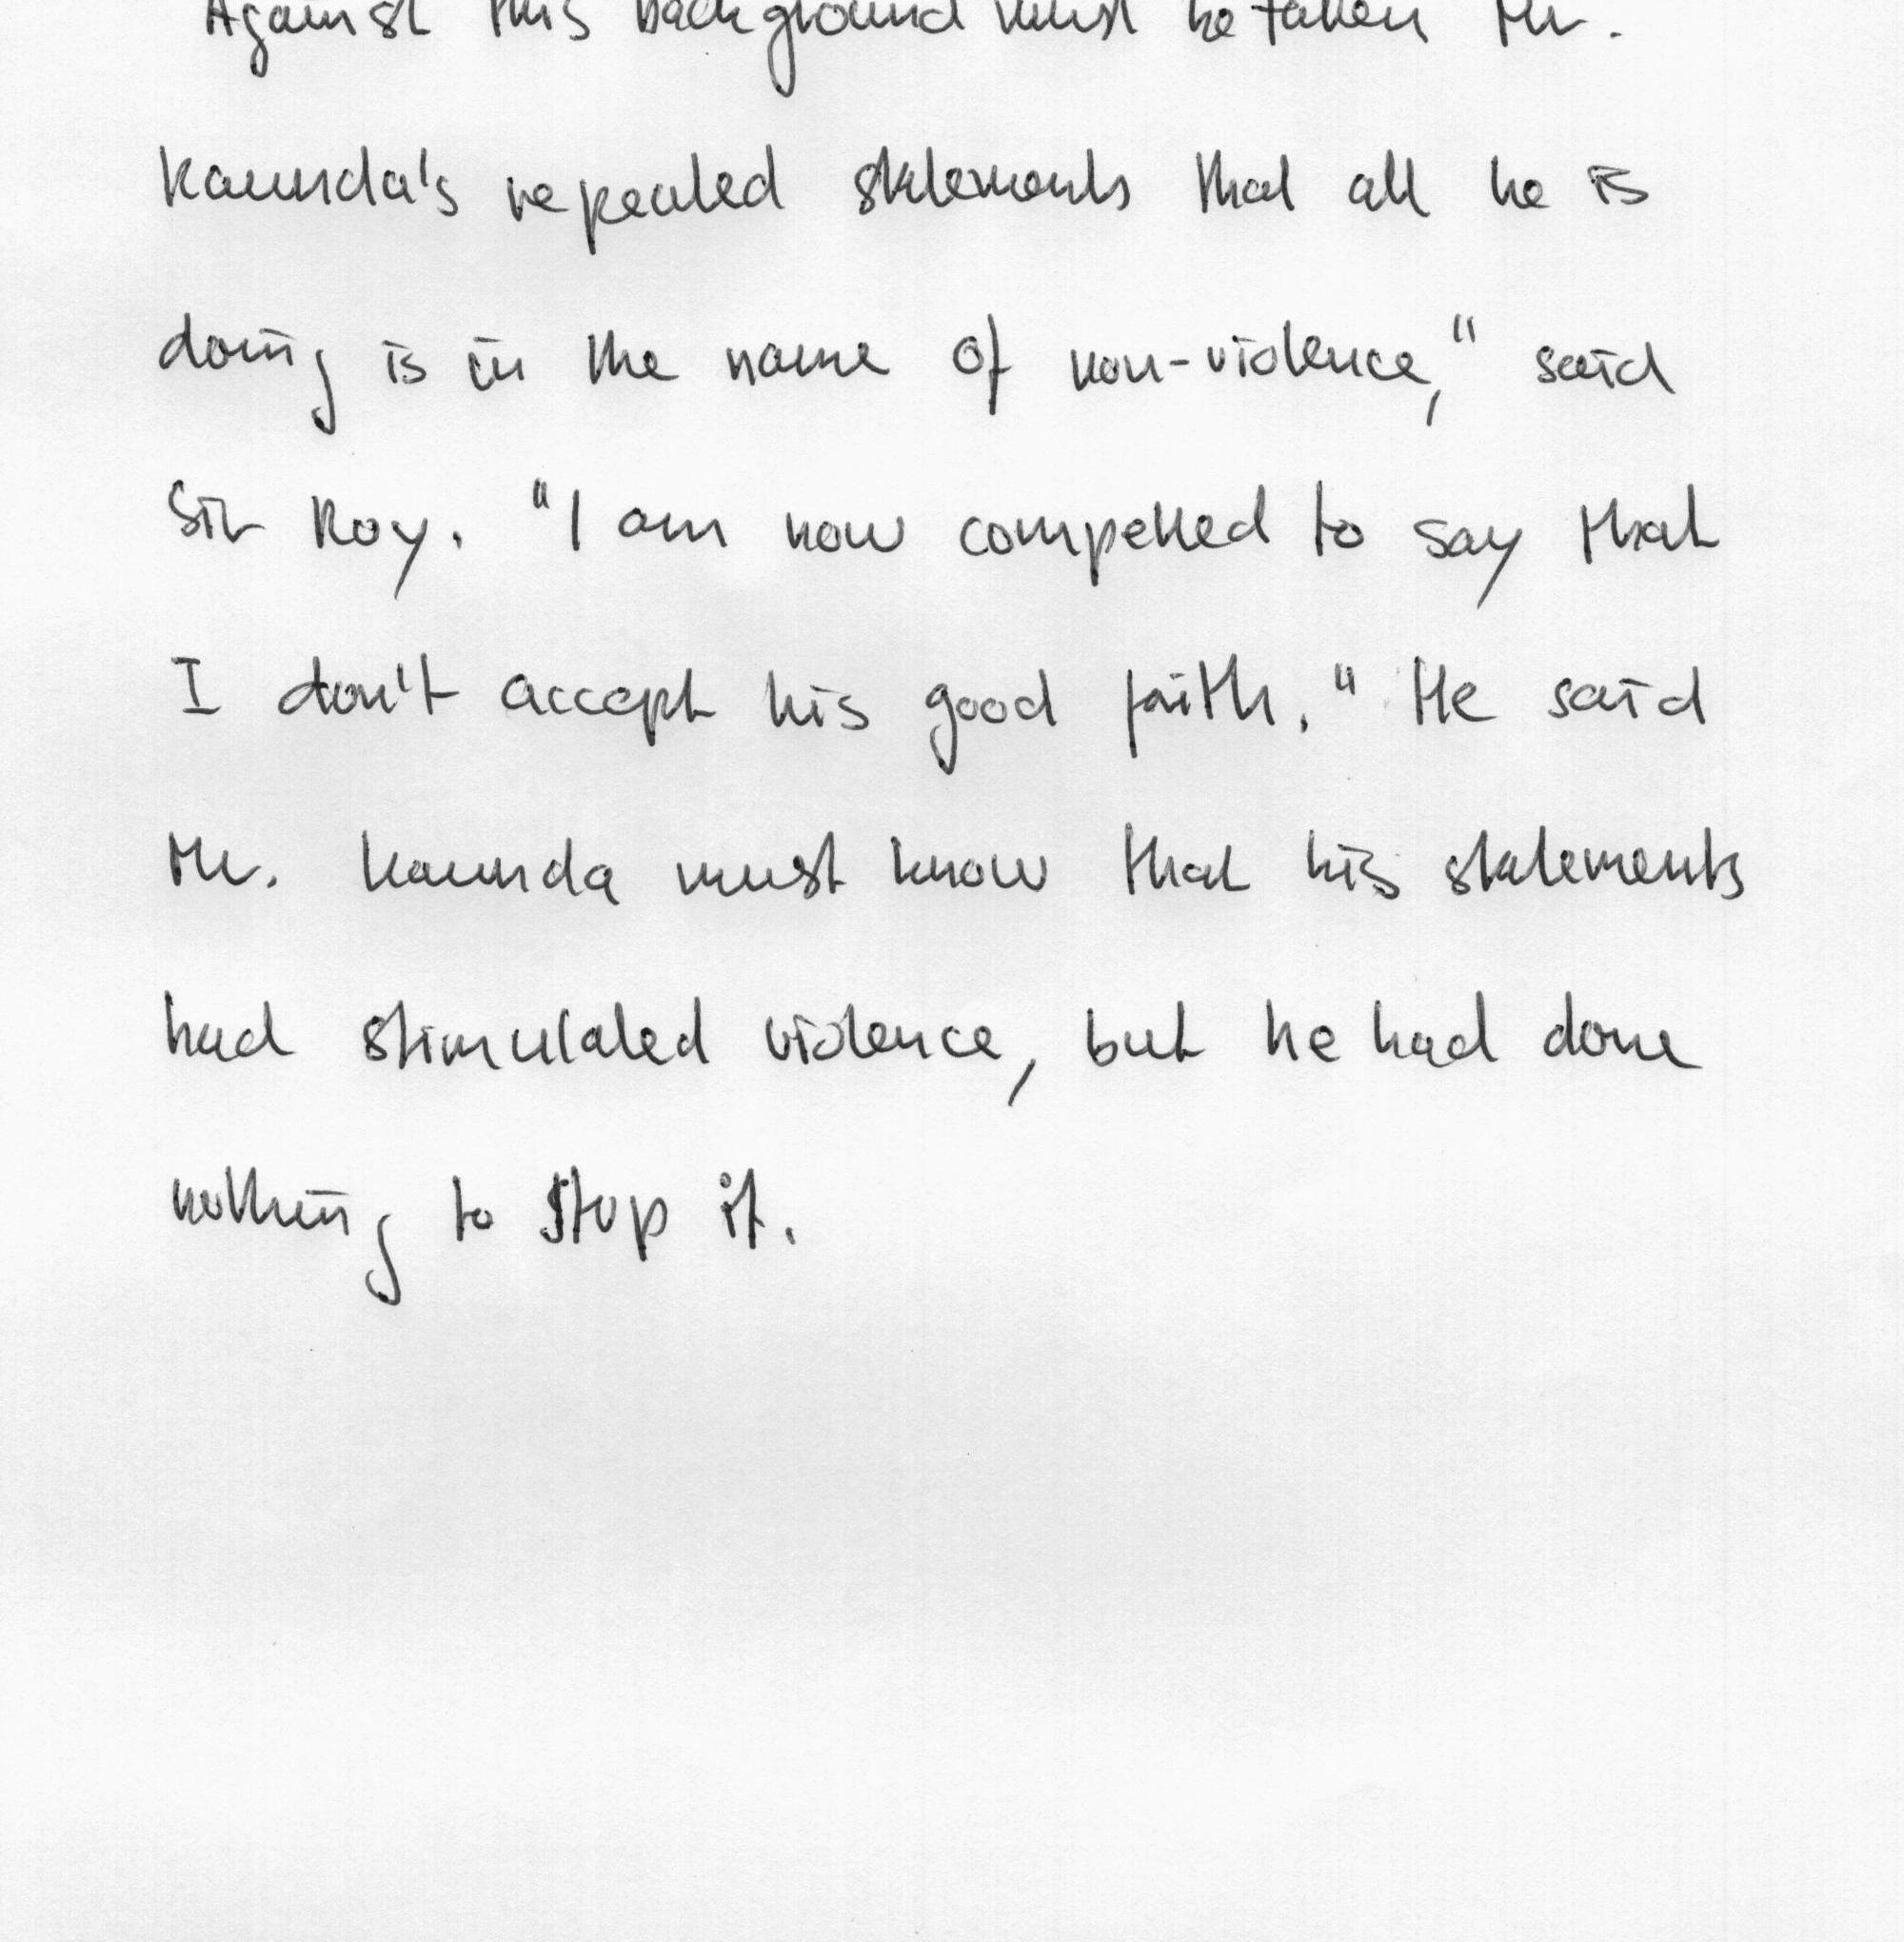 Against this background must be taken Mr.
Kaunda's repeated statements that all he is
doing is in the name of non-violence," said
Sir Roy. "I am now compelled to say that
I don't accept his good faith." He said
Mr. Kaunda must know that his statements
had stimulated violence, but he had done
nothing to stop it.